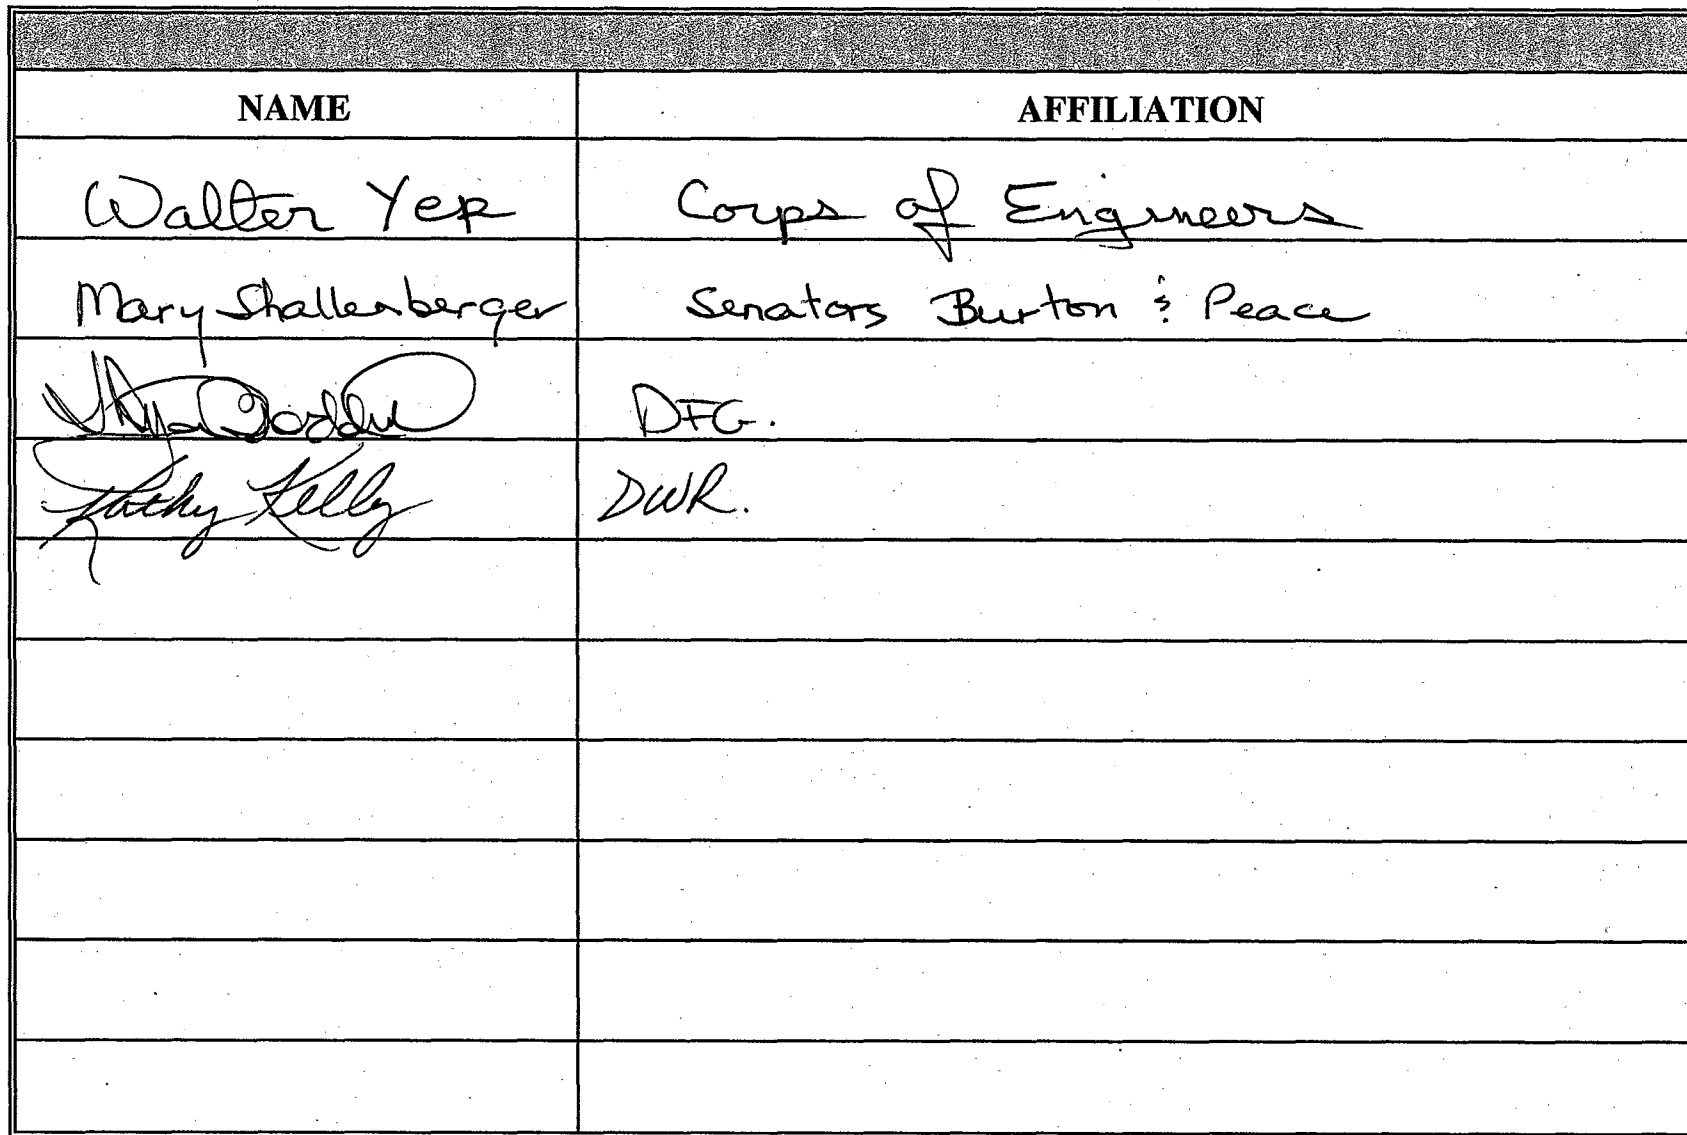 NAME AFFILIATION
Walter Yep Corps of Engineers
Mary Shallenberger Senators Burton & Peace
DFG.
Kathy Kelly DWR.